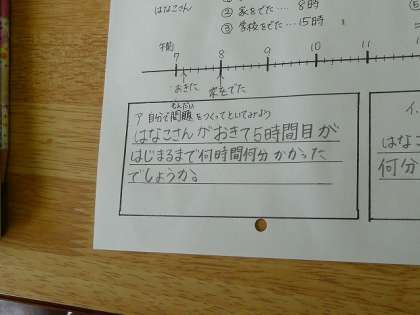 はなこさん
② 家をでた… 8時
③ 学校をでた… 15時
午前
7 8 9 10 11
おきた 家をでた
ア 自分で問題をつくってといてみよう
もんだい
はなこさんがおきて5時間目が
はじまるまで何時間何分かかった
でしょうか。
イ.
はなこ
何分